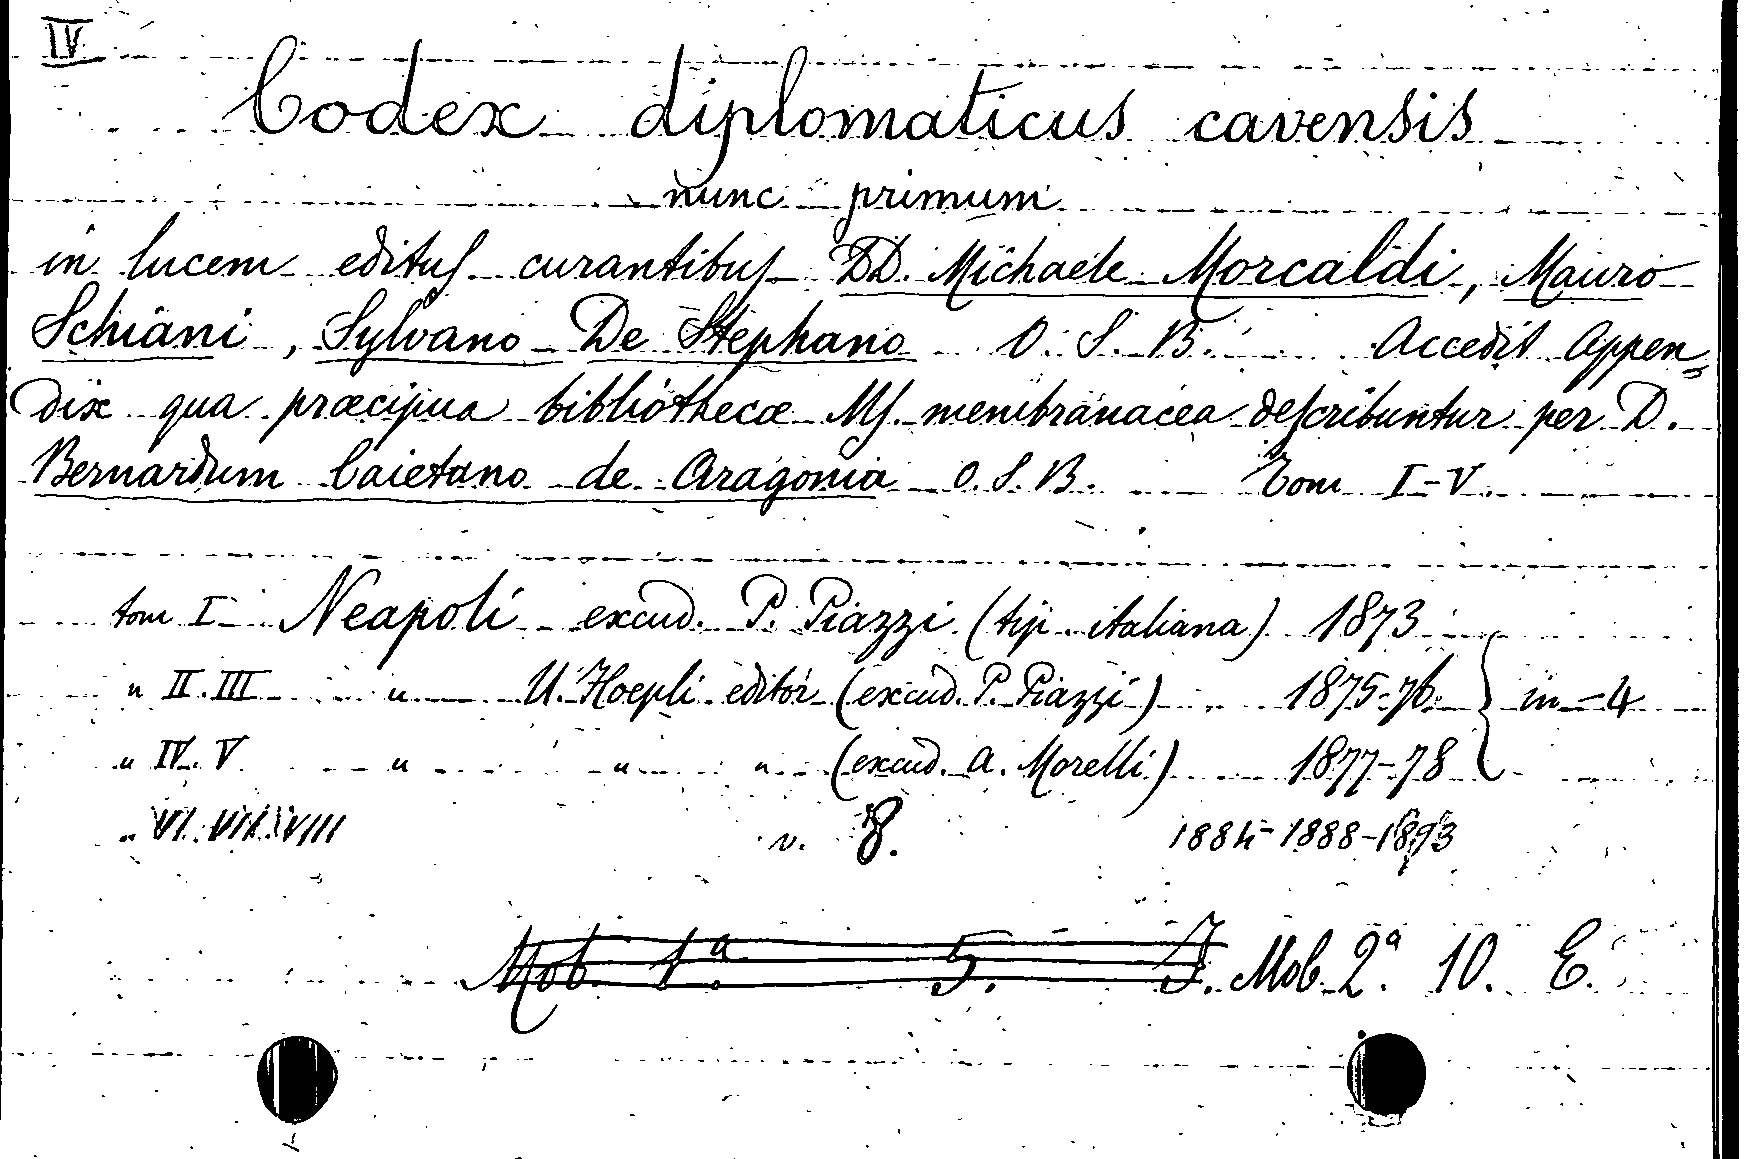 IV
Codex diplomaticus cavensis
nunc primum
in lucem edituſ curantibuſ DD. Michaele Morcaldi, Mauro
Schiani, Sylvano De Stephano O. S. B. Accedit Appen=
dix qua præcipua bibliothecæ Mſ. membranacea deſcribuntur per D.
Bernardum Caietano de Aragonia O. S. B. Tom I-V.
tom I Neapoli excud. P. Piazzi (tip. italiana) 1873
" II. III " U. Hoepli editor (excud. P. Piazzi) 1875-76 } in-4
" IV. V " " " (excud. A. Morelli) 1877-78
" VI. VII. VIII v. 8. 1884-1888-1893
Mob. 1ª. 5. J. Mob. 2ª. 10. E.